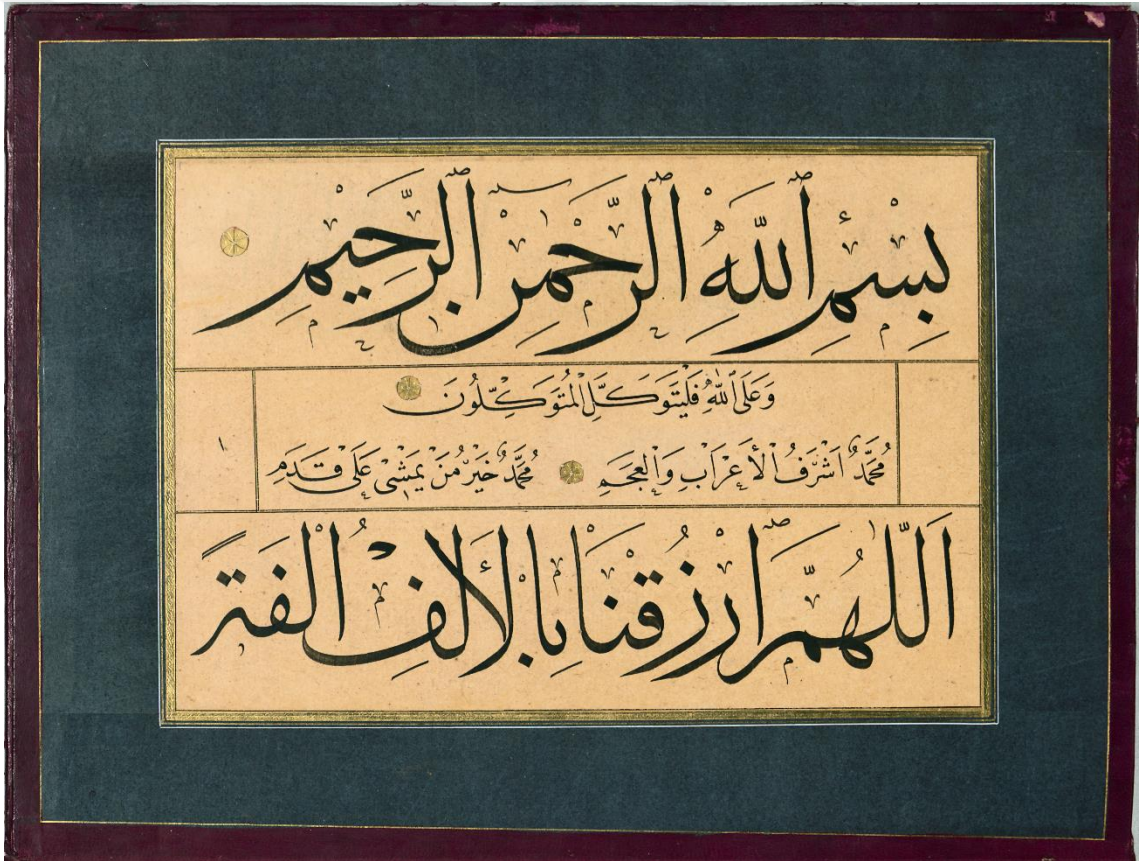 بِسْمِ ٱللَّهِ ٱلرَّحْمٰنِ ٱلرَّحِيمِ
وَعَلَى ٱللَّهِ فَلْيَتَوَكَّلِ الْمُتَوَكِّلُونَ
مُحَمَّدٌ اَشْرَفُ الْأَعْرَابِ وَالْعَجَمِ مُحَمَّدٌ خَيْرُ مَنْ يَمْشِى عَلَى قَدَمِ
اَللّٰهُمَّ ارْزُقْنَا بِالْأَلِفِ اُلْفَةً